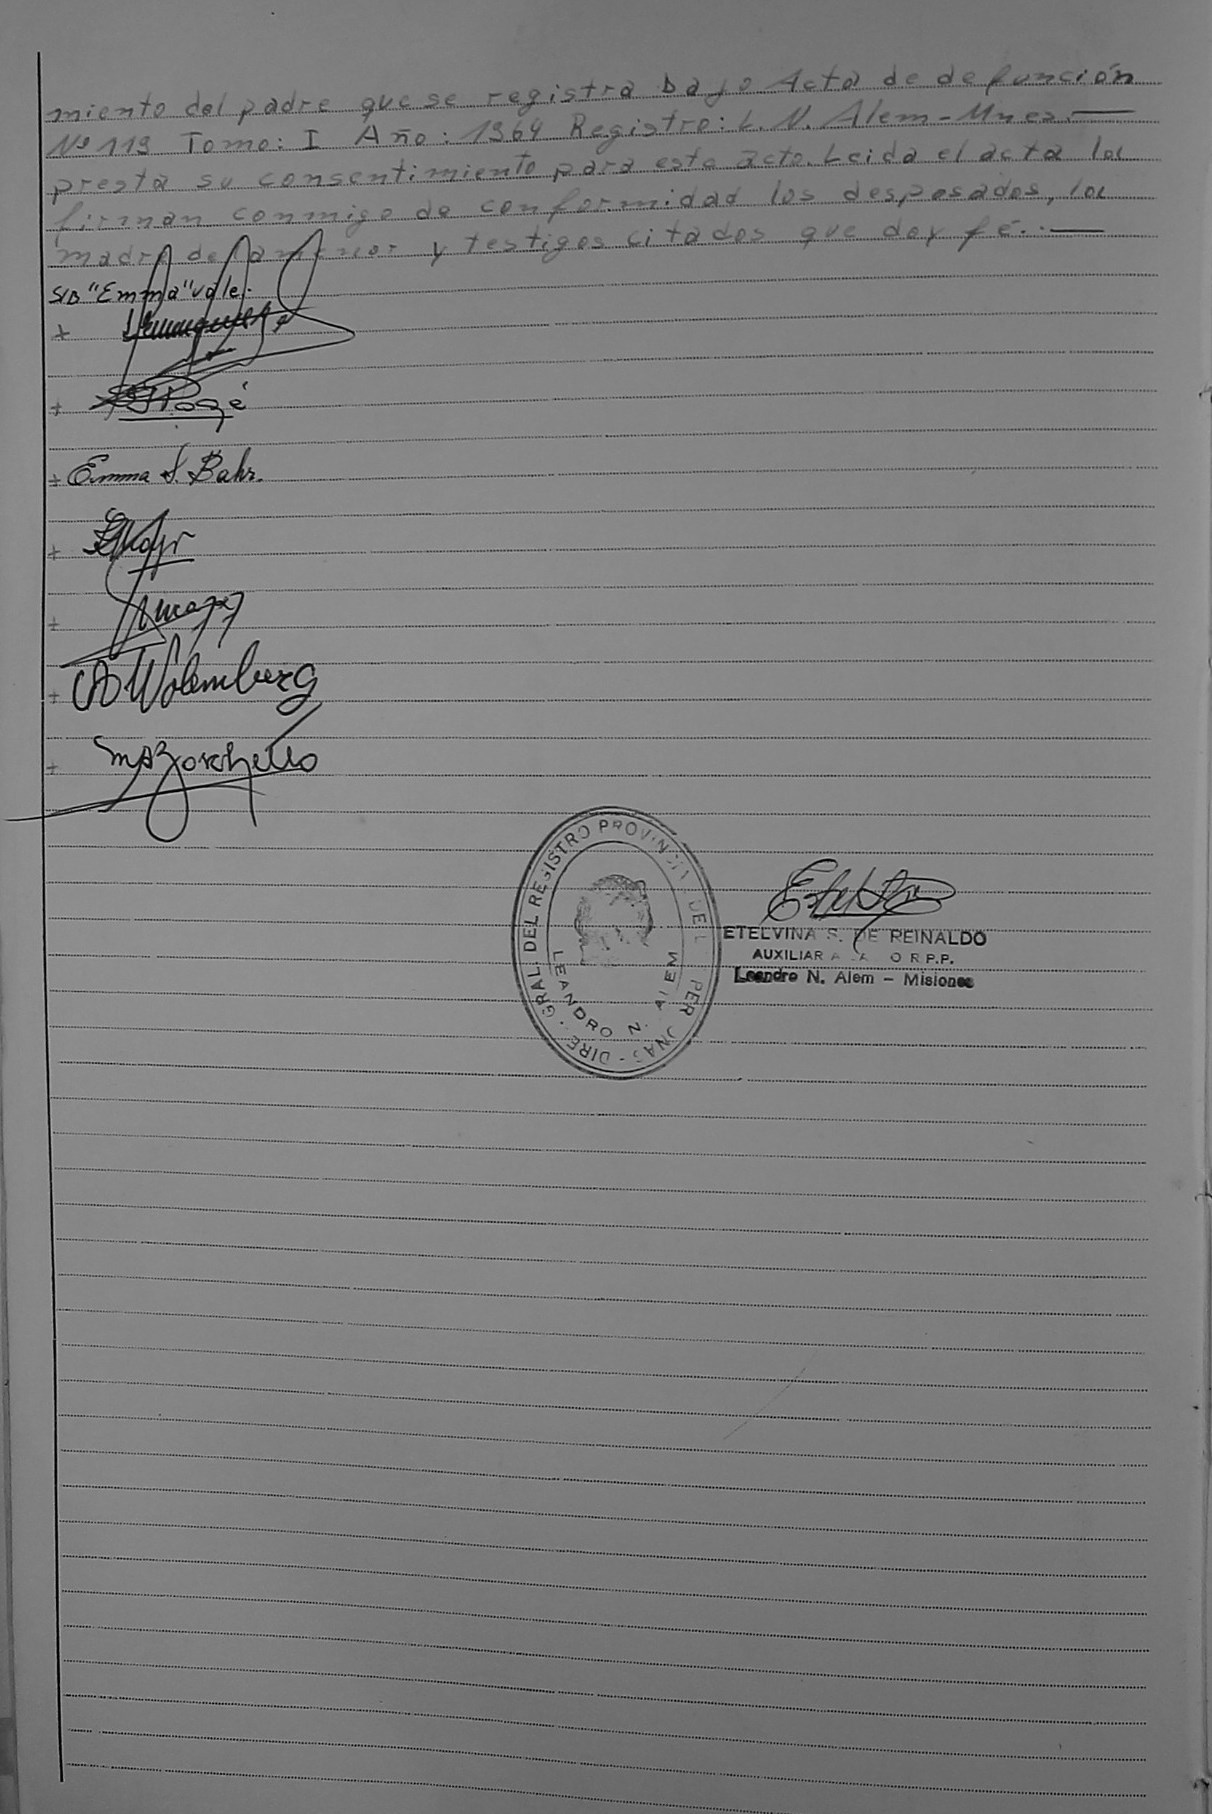 miento del padre que se registra bajo Acta de defunción
Nº 119 Tomo: I Año: 1964 Registro: L. N. Alem - Mnes.
presta su consentimiento para este acto. Leida el acta la
firman conmigo de conformidad los desposados, la
madre de la menor y testigos citados que doy fé.
S/B "Emma" vale.
Emma S. Bahr.
A Wolemberg
GRAL. DEL REGISTRO PROVINCIAL DE L PER ONAS - DIRE
LEANDRO N. ALEM
ETELVINA S. DE REINALDO
AUXILIAR A O R.P.P.
Leandro N. Alem - Misiones